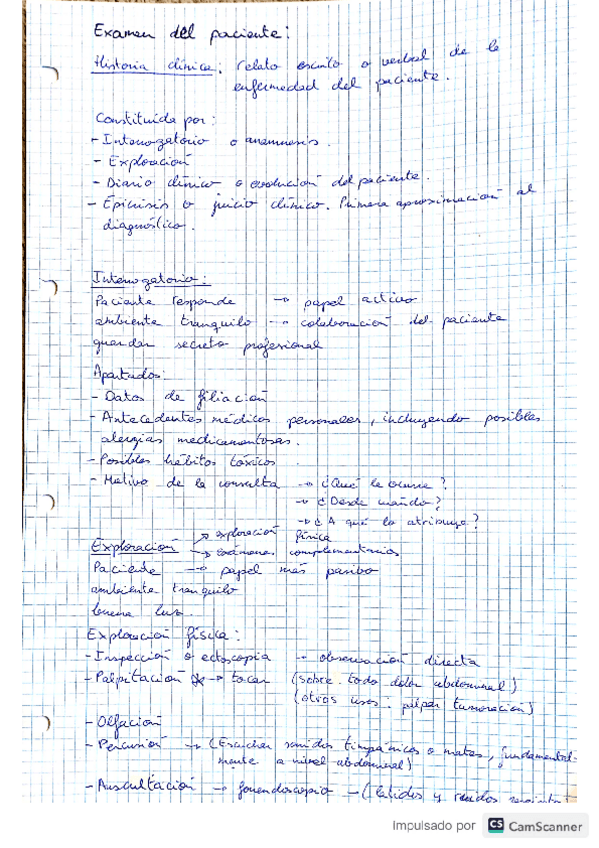 Examen del paciente:
Historia clínica: relato escrito o verbal de la
enfermedad del paciente.
Constituida por:
- Interrogatorio o anamnesis.
- Exploración
- Diario clínico o evolución del paciente.
- Epicrisis o juicio clínico. Primera aproximación al
diagnóstico.
Interrogatorio:
Paciente responde → papel activo
ambiente tranquilo → colaboración del paciente
guardar secreto profesional
Apartados:
- Datos de filiación
- Antecedentes médicos personales, incluyendo posibles
alergias medicamentosas.
- Posibles hábitos tóxicos
- Motivo de la consulta → ¿Qué le ocurre?
→ ¿Desde cuándo?
→ ¿A qué lo atribuye?
Exploración → exploración física
→ exámenes complementarios
Paciente → papel más pasivo
ambiente tranquilo
buena luz.
Exploración física:
- Inspección o ectoscopia → observación directa
- Palpitación * → tocar (sobre todo dolor abdominal)
(otros usos: palpar tumoración)
- Olfación
- Percusión → (Escuchar sonidos timpánicos o mates, fundamental-
mente a nivel abdominal)
- Auscultación → fonendoscopio → (latidos y ruidos
Impulsado por CS CamScanner